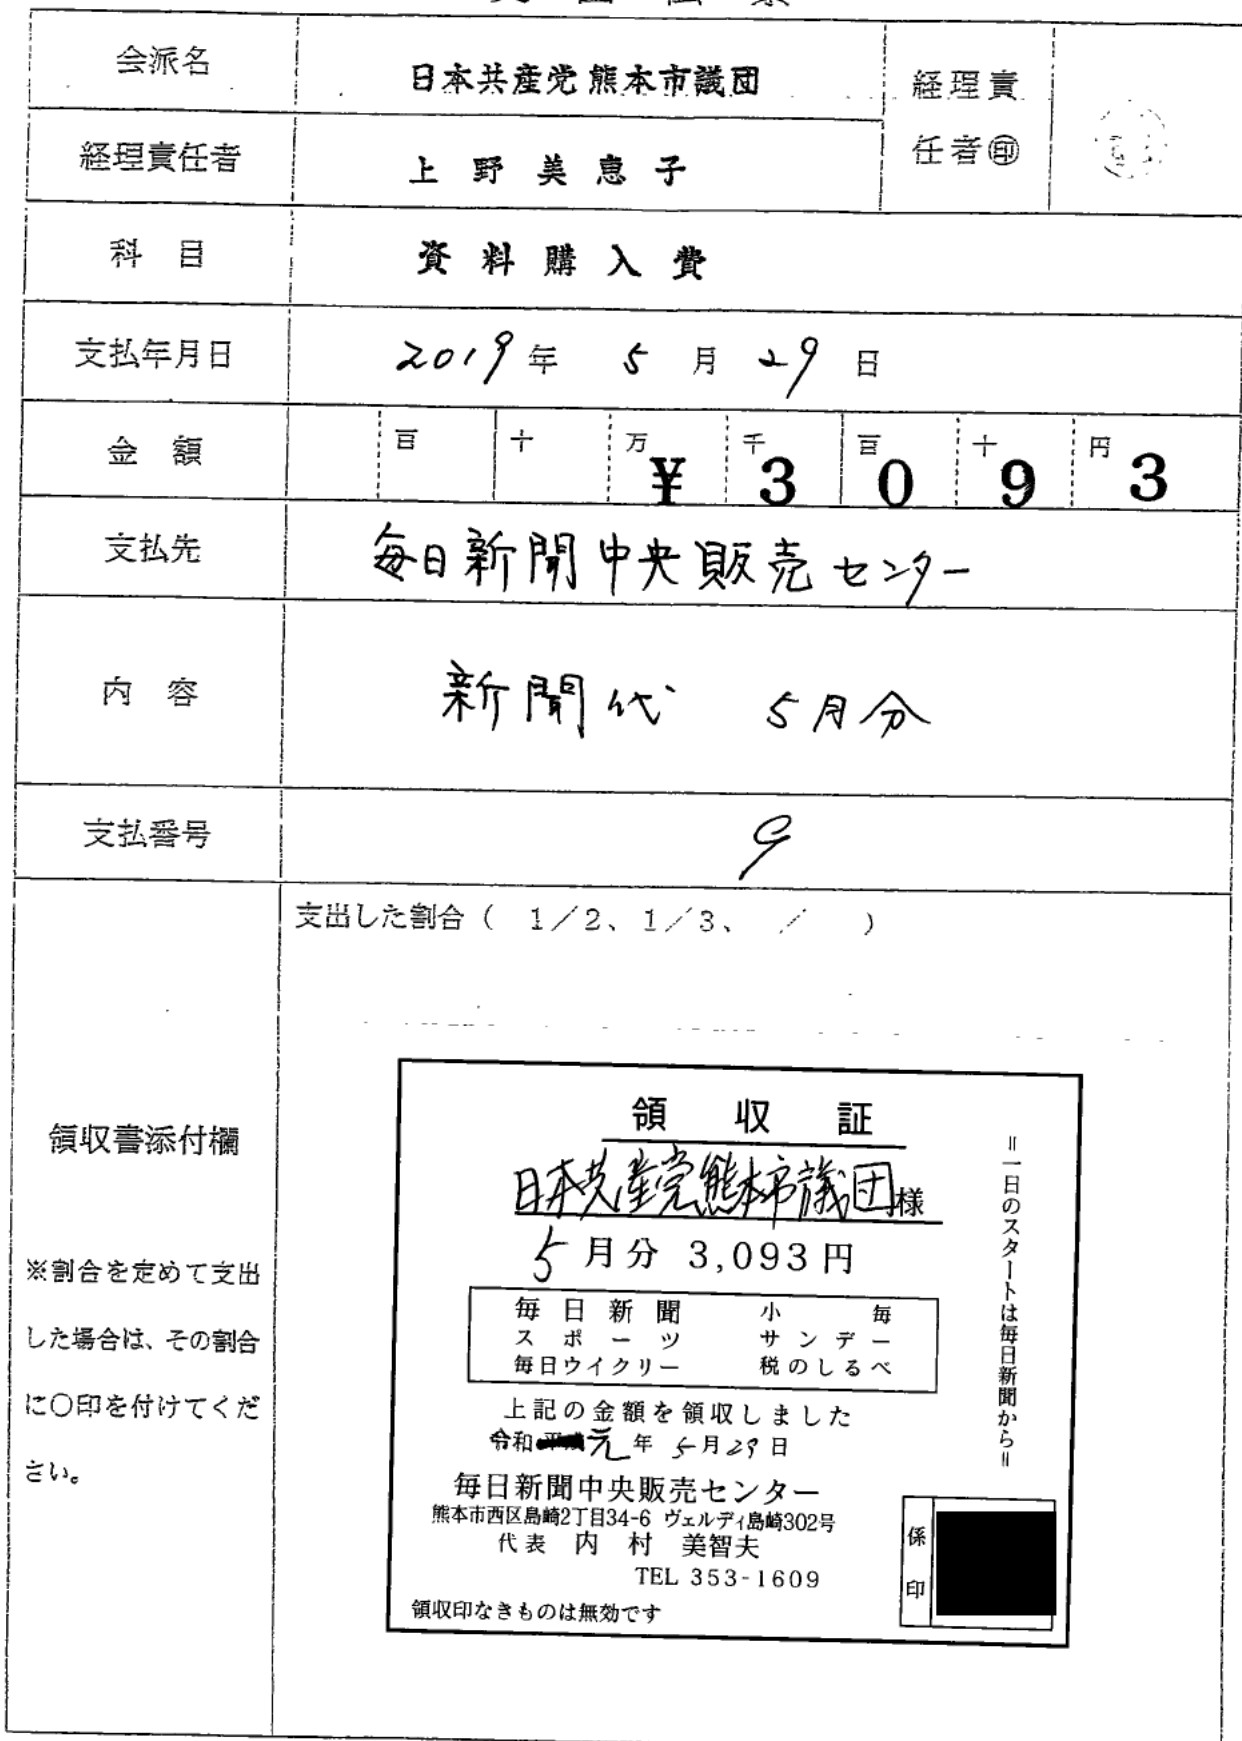 会派名 日本共産党熊本市議団 経理責任者㊞
経理責任者 上野美恵子
科目 資料購入費
支払年月日 2019年 5月 29日
金額 百 十 万 千 百 十 円
¥3093
支払先 毎日新聞中央販売センター
内容 新聞代 5月分
支払番号 9
支出した割合（ 1／2、1／3、 ／ ）
領収書添付欄
※割合を定めて支出
した場合は、その割合
に〇印を付けてくだ
さい。
領収証
日本共産党熊本市議団様
5月分 3,093円
毎日新聞 小毎
スポーツ サンデー
毎日ウイクリー 税のしるべ
上記の金額を領収しました
令和元年 5月29日
毎日新聞中央販売センター
熊本市西区島崎2丁目34-6 ヴェルディ島崎302号
代表 内村 美智夫
TEL 353-1609
領収印なきものは無効です
係印
＝一日のスタートは毎日新聞から＝